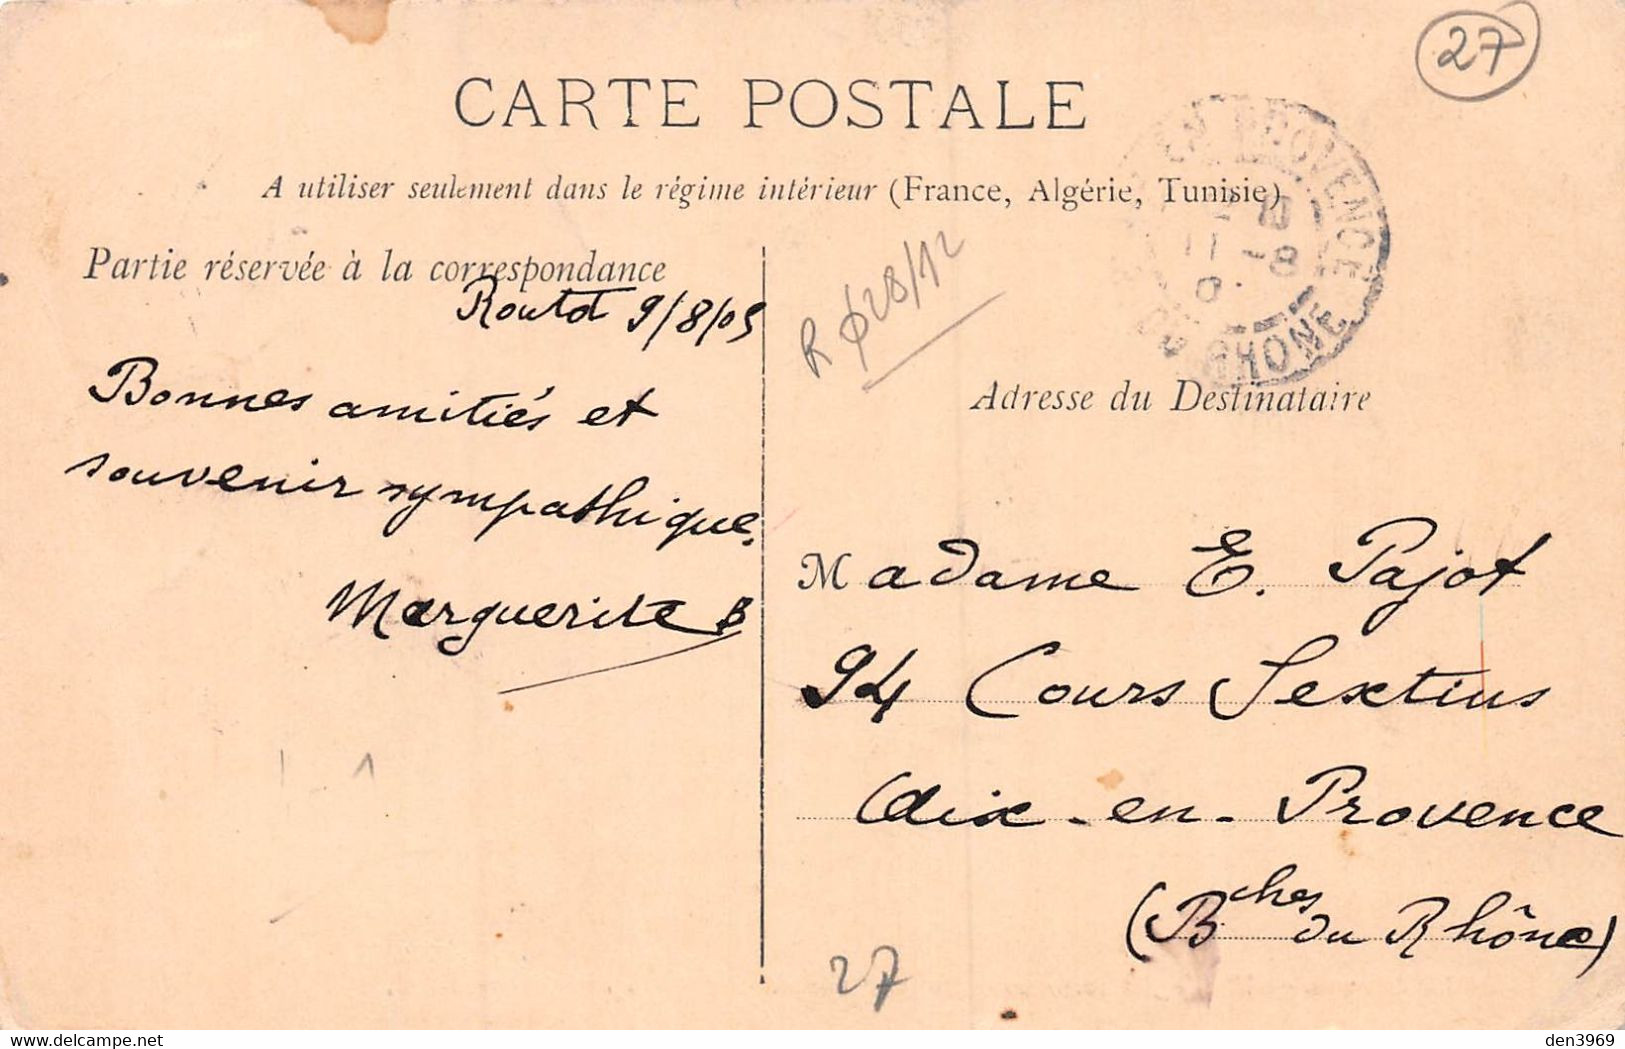 27
CARTE POSTALE
A utiliser seulement dans le régime intérieur (France, Algérie, Tunisie)
EN PROVENCE
11 -8
DU RHONE
Partie réservée à la correspondance
Routot 9/8/05
Bonnes amitiés et
souvenir sympathique.
Marguerite B
R φ28/12
Adresse du Destinataire
Madame E. Pajot
94 Cours Sextius
Aix-en-Provence
(Bches du Rhône)
27
Delcampe.net
den3969